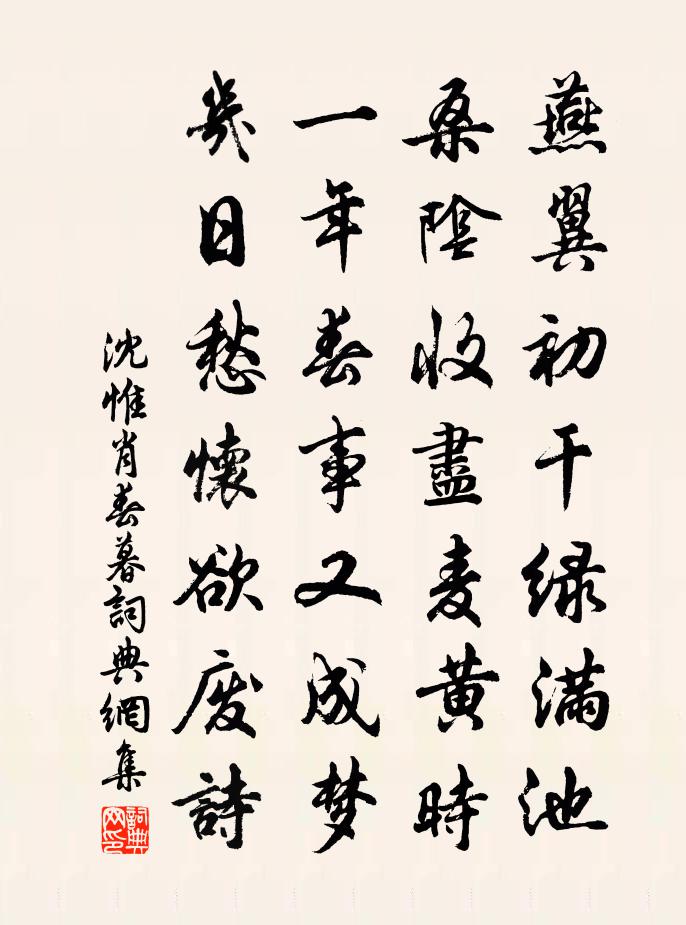 燕翼初干绿满池
桑陰收盡麦黄時
一年春事又成梦
幾日愁懷欲廢詩
沈惟肖春暮詞典網集
詞典网印